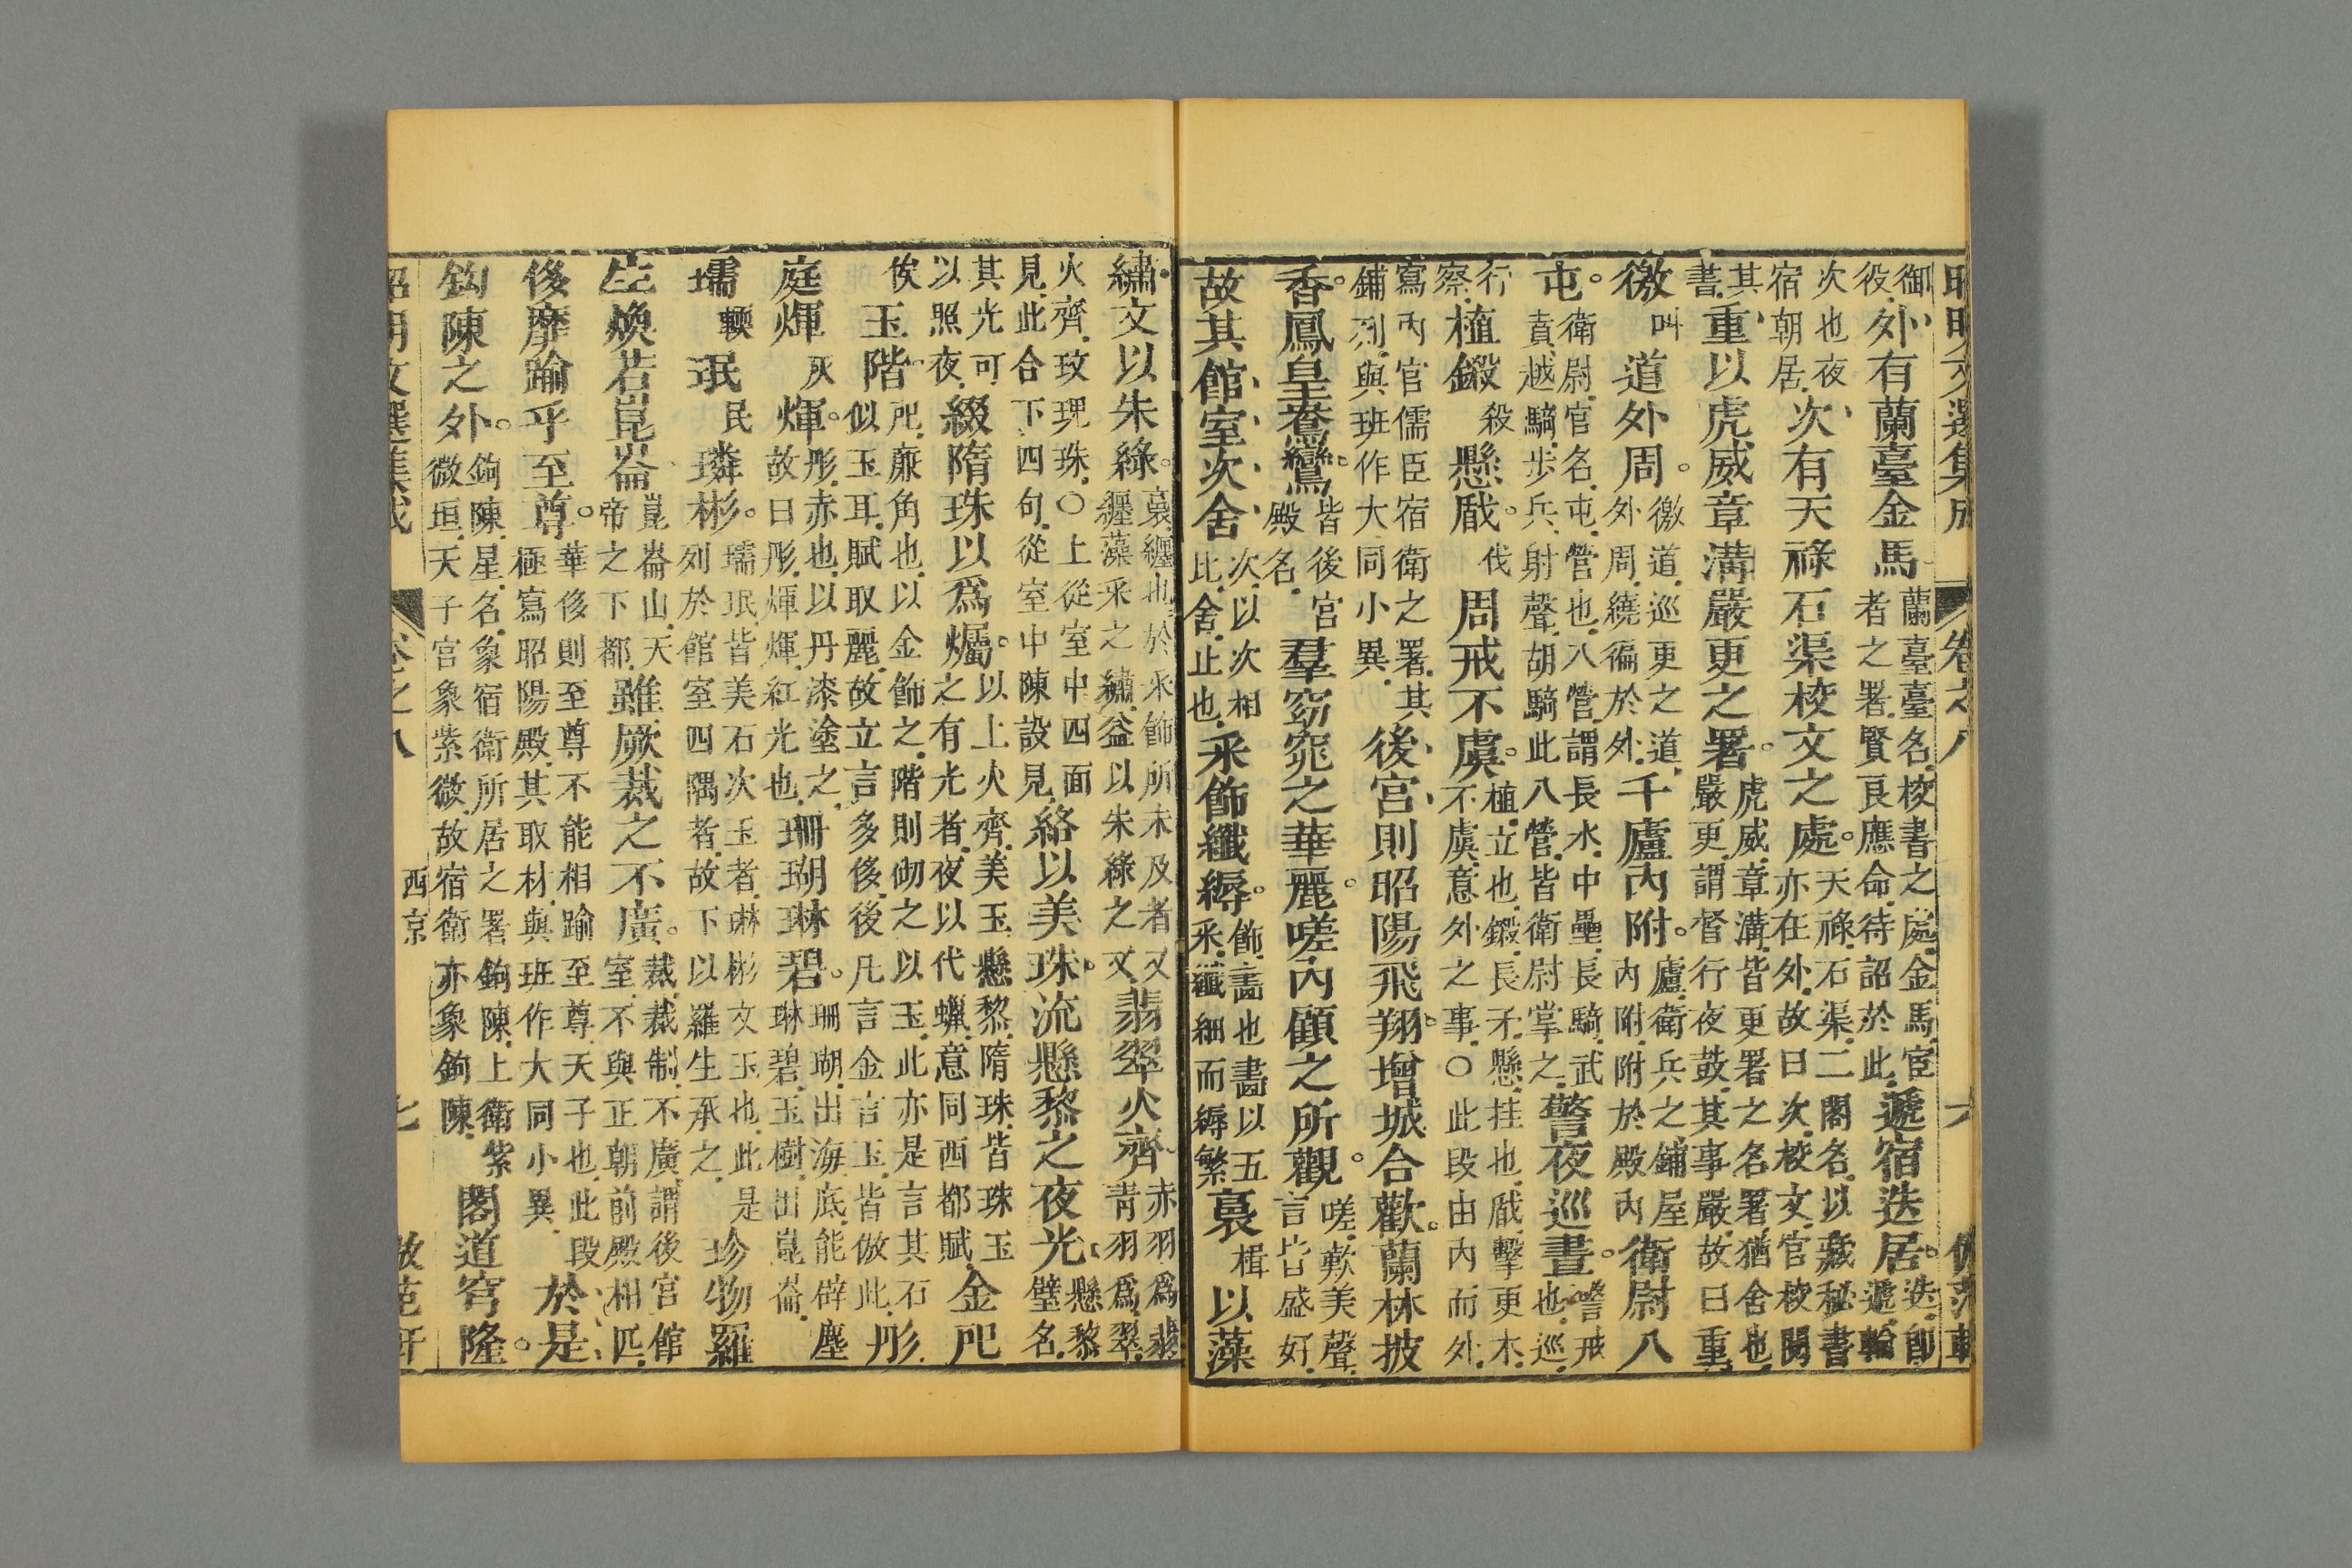 昭明文選集成 卷之八 六 倣范軒
御役外有蘭臺金馬蘭臺臺名校書之處金馬宦者之署賢良應命待詔於此遞宿迭居迭即遞輪
次也夜宿朝居次有天祿石渠校文之處天祿石渠二閣名以藏秘書亦在外故曰次校文官校閱
其書重以虎威章溝嚴更之署虎威章溝皆更署之名署猶舍也嚴更謂督行夜鼓其事嚴故曰重
徼叫道外周徼道巡更之道外周繞徧於外千廬內附廬衛兵之鋪屋內附附於殿內衛尉八
屯衛尉官名屯營也八營謂長水中壘長騎武賁越騎步兵射聲胡騎此八營皆衛尉掌之警夜巡晝警戒也巡
行察植鎩殺懸瞂伐周戒不虞植立也鎩長矛懸挂也瞂擊更木不虞意外之事○此段由內而外
寫內官儒臣宿衛之署其鋪列與班作大同小異後宮則昭陽飛翔增城合歡蘭林披
香鳳皇鴛鸞皆後宮殿名羣窈窕之華麗嗟內顧之所觀嗟歎美聲言皆盛好
故其館室次舍次以次相比舍止也采飾纖縟飾畵也畵以五采纖細而縟繁裛楫以藻
繡文以朱綠裛纏也於采飾所未及者又纏藻采之繡益以朱綠之文翡翠火齊赤羽爲翡青羽爲翠
火齊玫瑰珠○上從室中四面見此合下四句從室中陳設見絡以美珠流懸黎之夜光懸黎璧名
其光可以照夜綴隋珠以爲爥以上火齊美玉懸黎隋珠皆珠玉之有光者夜以代蠟意同西都賦金戺
俟玉階戺亷角也以金飾之階則砌之以玉此亦是言其石似玉耳賦取麗故立言多侈後凡言金言玉皆倣此彤
庭煇灰煇彤赤也以丹漆塗之故曰彤煇煇紅光也珊瑚琳碧珊瑚出海底能辟塵琳碧玉樹出崑崙
瓀輭珉民璘彬瓀珉皆美石次玉者璘彬文玉也此是列於館室四隅者故下以羅生承之珍物羅
生煥若崑崙崑崙山天帝之下都雖厥裁之不廣裁裁制不廣謂後宮館室不與正朝前殿相匹
侈靡踰乎至尊華侈則至尊不能相踰至尊天子也此段極寫昭陽殿其取材與班作大同小異於是
鈎陳之外鉤陳星名象宿衛所居之署鉤陳上衛紫微垣天子宮象紫微故宿衛亦象鉤陳閣道穹隆
昭明文選集成 卷之八 西京 七 倣范軒